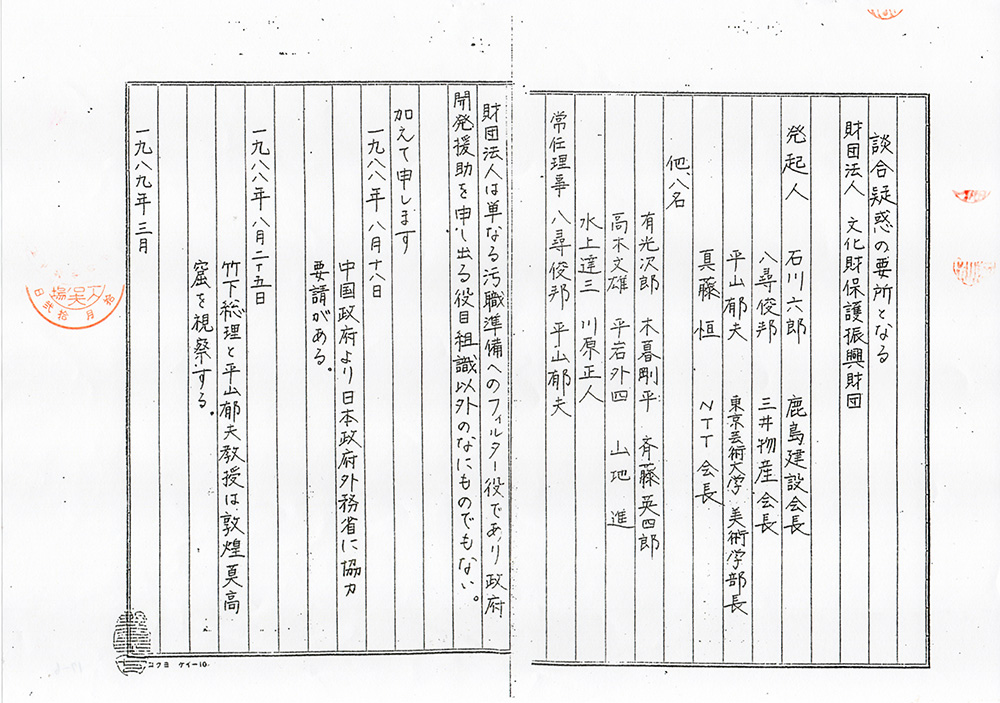 談合疑惑の要所となる
財団法人 文化財保護振興財団
発起人 石川六郎 鹿島建設会長
八尋俊邦 三井物産会長
平山郁夫 東京芸術大学 美術学部長
真藤 恒 NTT会長
他、八名
有光次郎 木暮剛平 斉藤英四郎
高木文雄 平岩外四 山地 進
水上達三 川原正人
常任理事 八尋俊邦 平山郁夫
財団法人は単なる汚職準備へのフィルター役であり政府
開発援助を申し出る役目組識以外のなにものでもない。
加えて申します
一九八八年 八月十八日
中国政府より日本政府外務省に協力
要請がある。
一九八八年 八月二十五日
竹下総理と平山郁夫教授は敦煌莫高
窟を視察する。
一九八九年 三月
コクヨ ケイー10